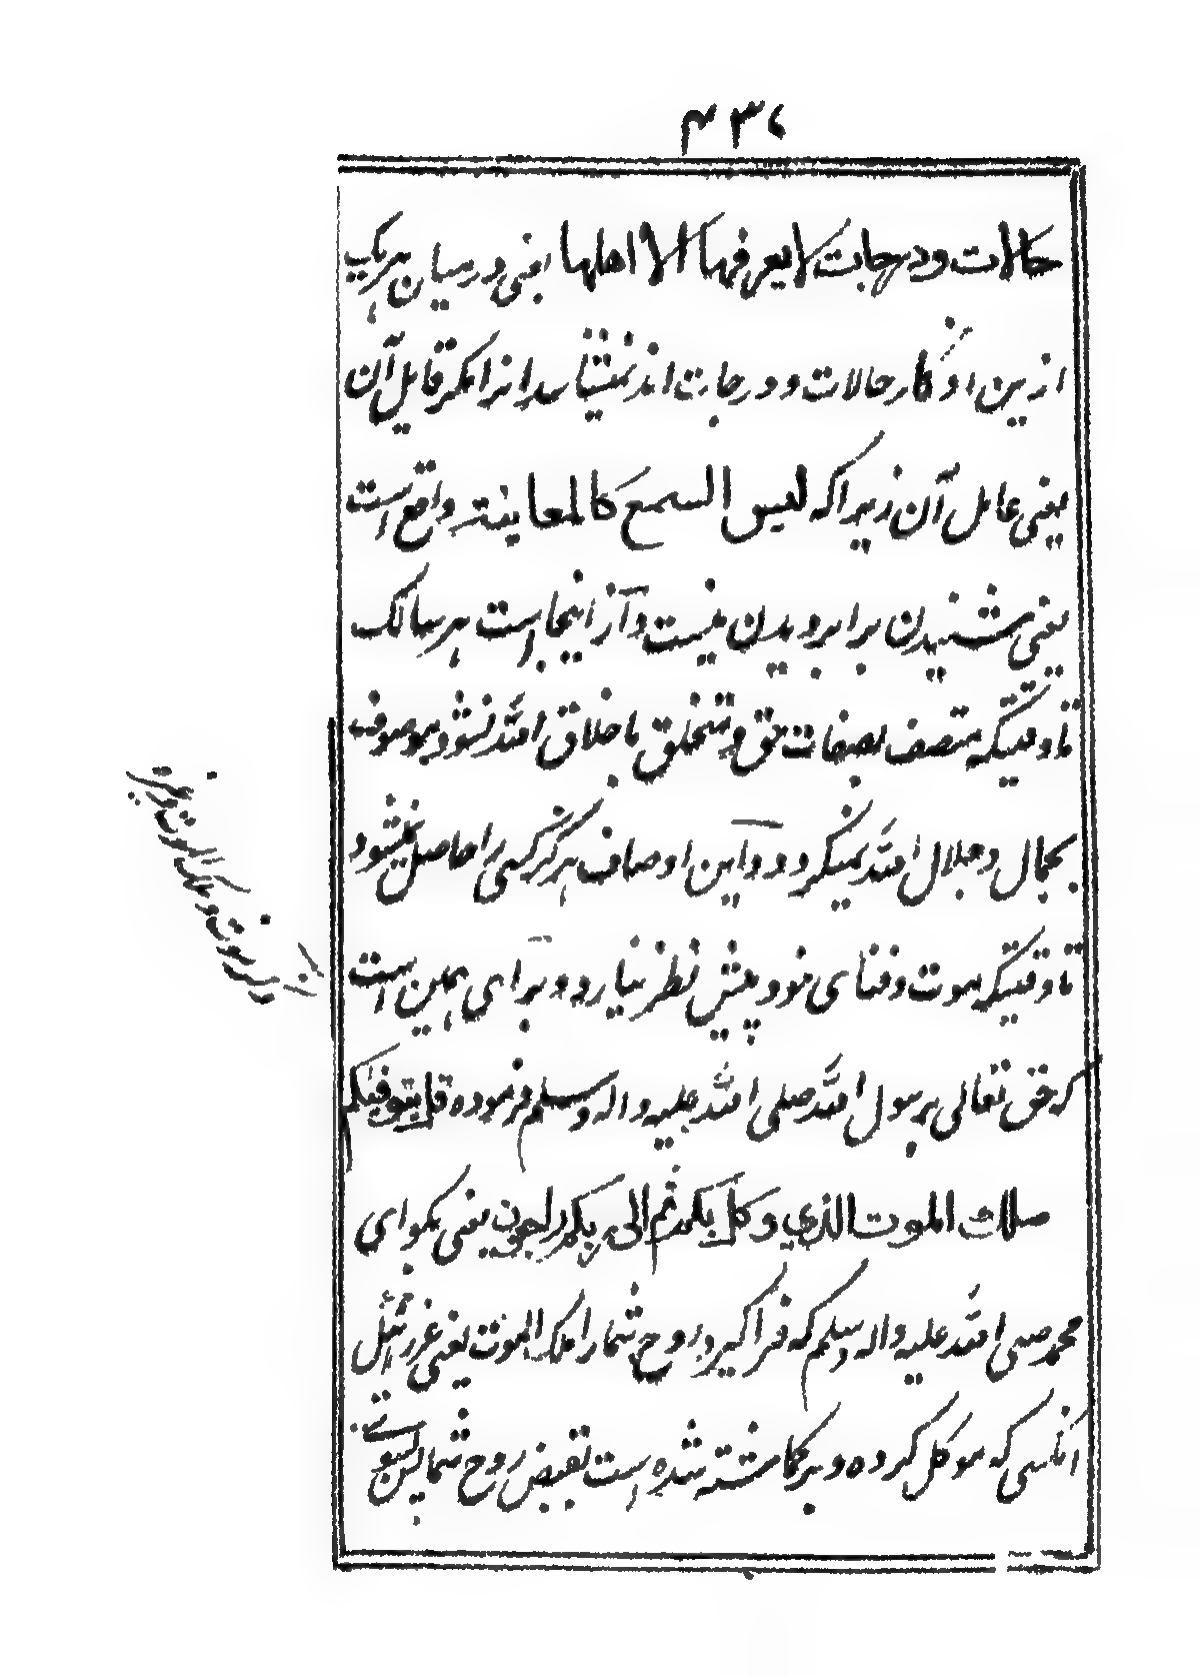 حالات ودرجات لا يعرفها الا اهلها یعنی درمیان هریک
ازین اذکار حالات و درجات اند نمیشناسد انرا مگر قابل آن
یعنی عامل آن زیراکه لیس السمع کالمعاینة واقع است
یعنی شنیدن برابر دیدن نیست و از اینجا است هر سالک
تا وقتیکه متصف بصفات حق و متخلق باخلاق الله نشود موصوف
بجمال و جلال الله نمیگردد و این اوصاف هرگز کسی را حاصل نمیشود
تا وقتیکه موت و فنای خود پیش نظر نیارد و برای همین است
که حق تعالی بر رسول الله صلی الله علیه واله وسلم فرموده قل یتوفیکم
ملاك الموت الذي وكل بكم ثم الى ربكم راجعون یعنی بگو ای
محمد صلی الله علیه واله وسلم که فراگیرد روح شما را ملک الموت یعنی عزرائیل
انکسی که موکل کرده و برگماشته شده است بقبض روح شما پس بسوی
ذکر موت و ملک الموت وغیره